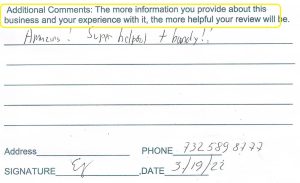 Additional Comments: The more information you provide about this
business and your experience with it, the more helpful your review will be.
Amazing! Super helpful + handy!!
Address
PHONE 732 589 8777
SIGNATURE
,DATE 3/19/22